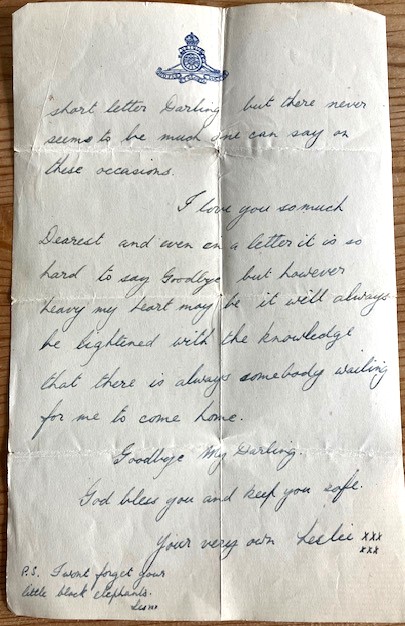 short letter Darling but there never
seems to be much one can say on
these occasions.
I love you so much
Dearest and even in a letter it is so
hard to say Goodbye but however
heavy my heart may be it will always
be lightened with the knowledge
that there is always somebody waiting
for me to come home.
Goodbye My Darling.
God bless you and keep you safe.
Your very own Leslie xxx
xxx
P.S. I wont forget your
little black elephants.